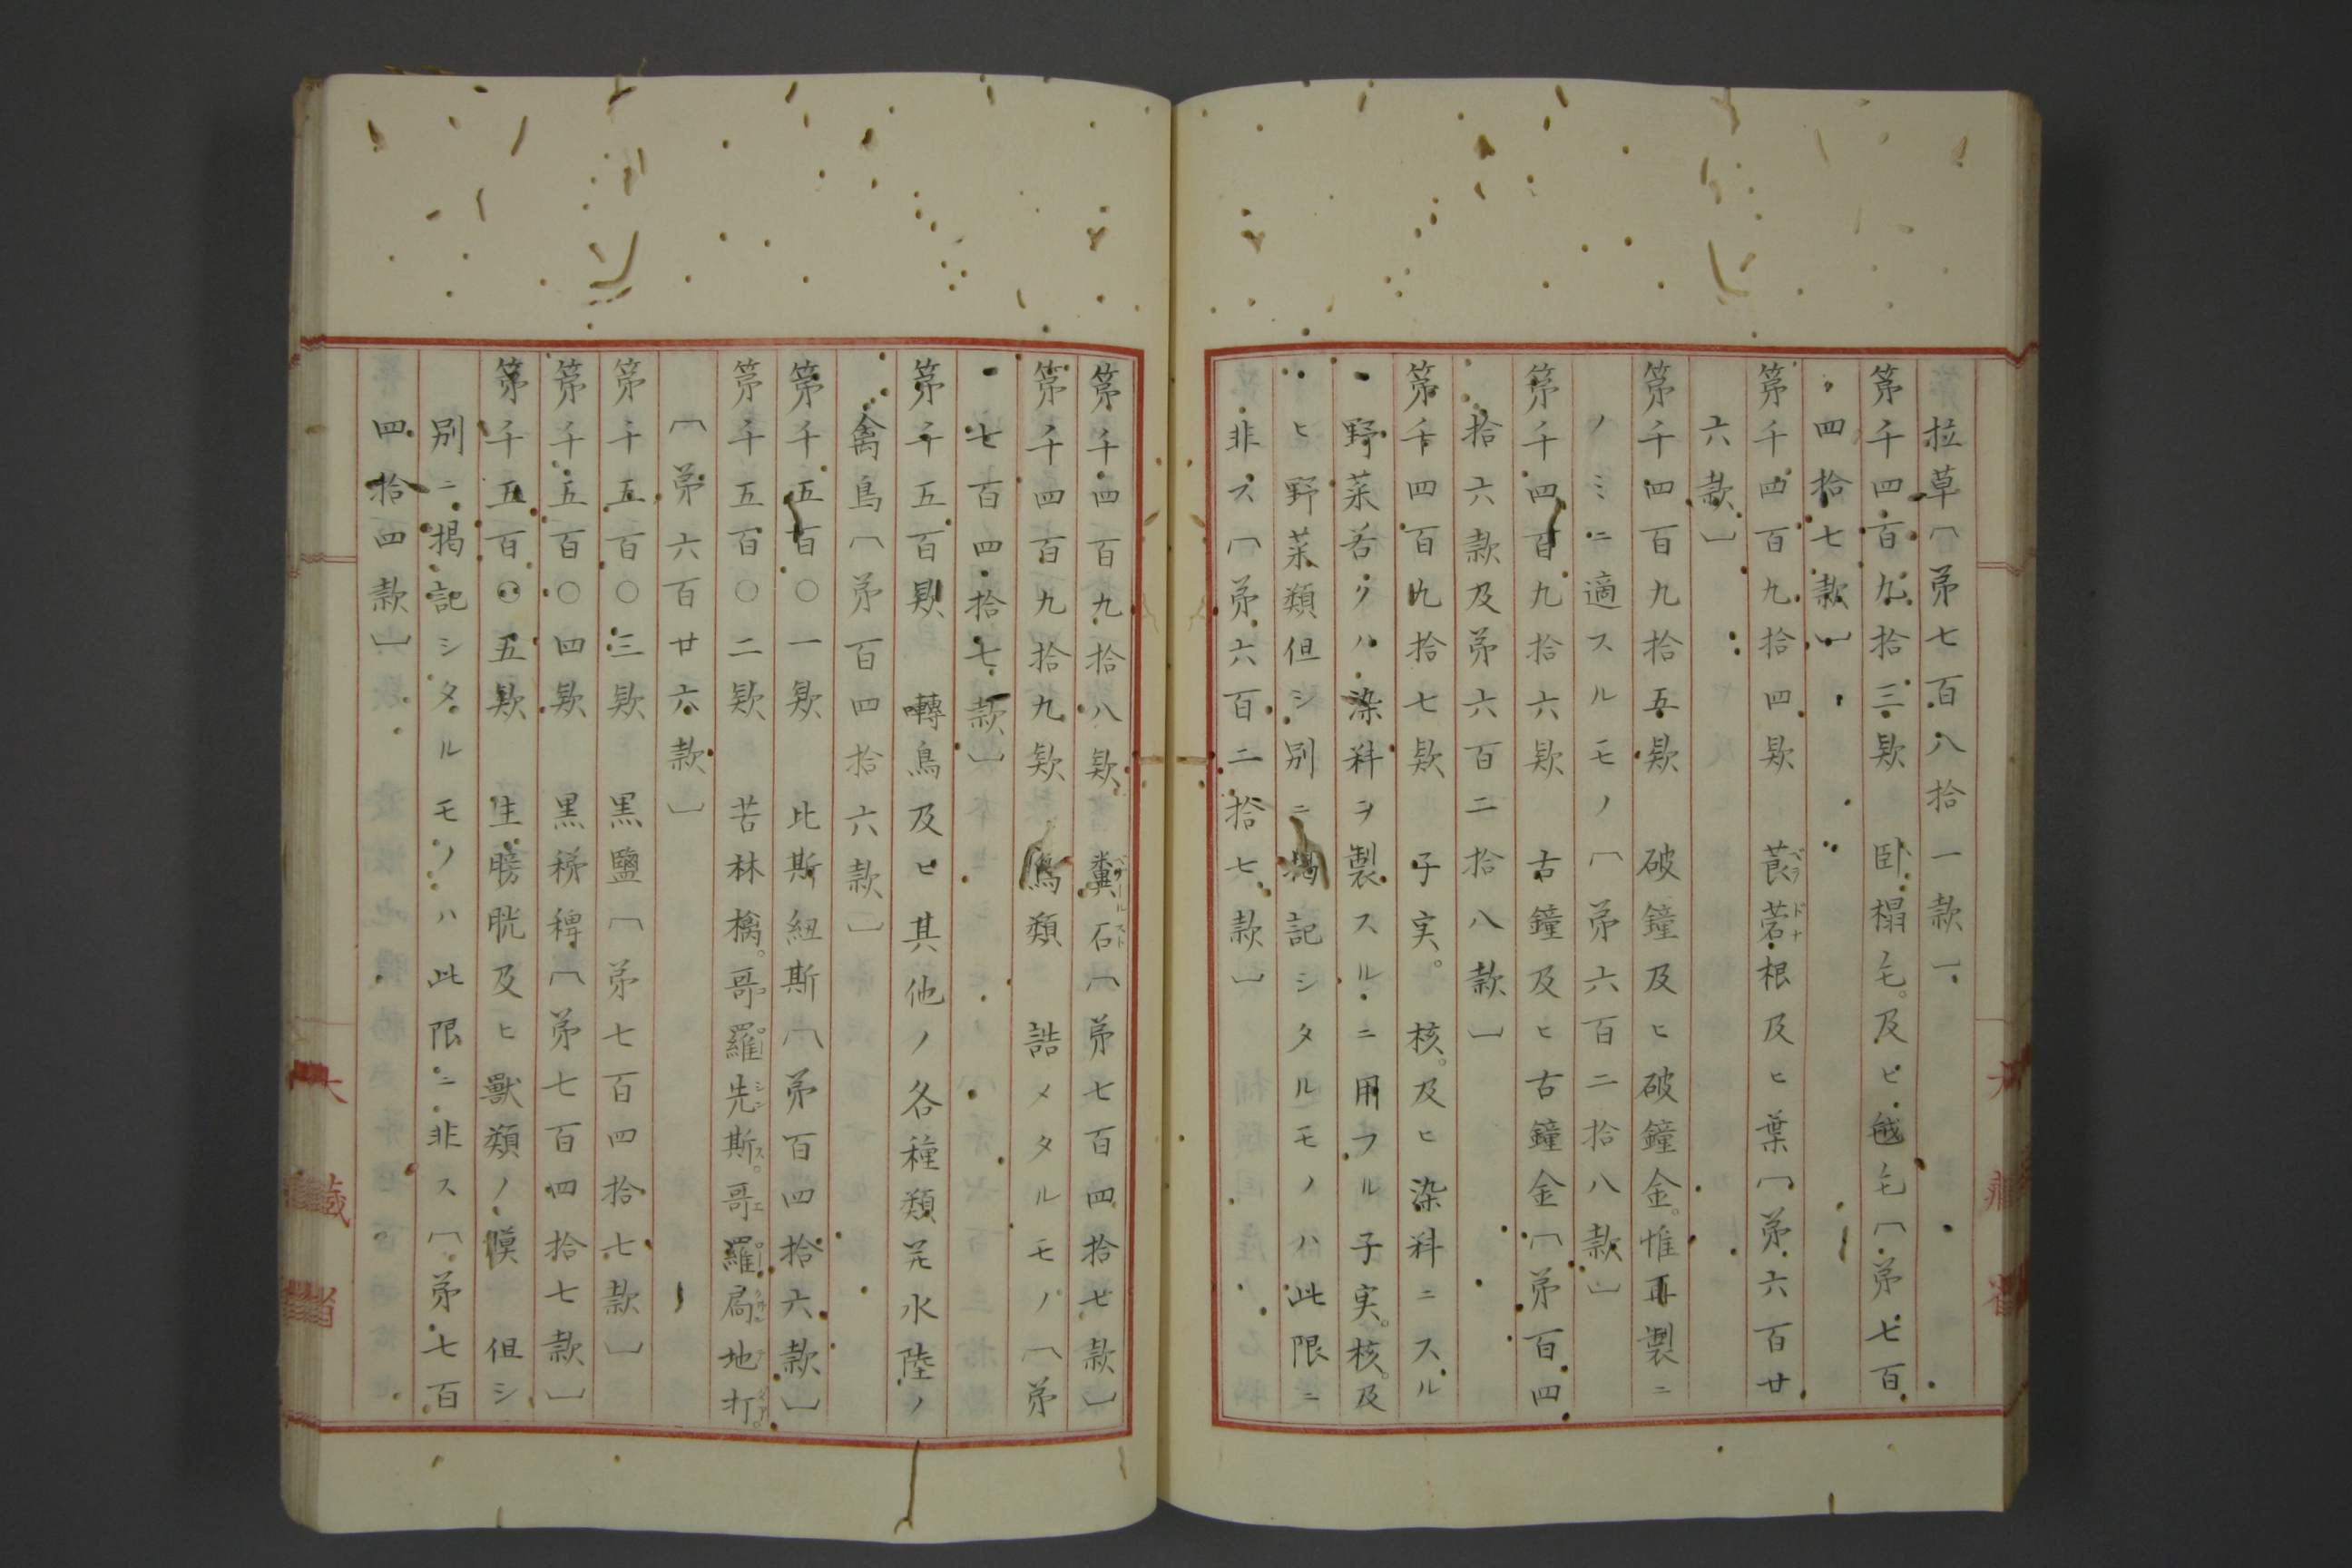 拉草〔苐七百八拾一款〕
苐千四百九拾三欵　卧榻毛。及ヒ毯毛〔苐七百
四拾七款〕
苐千四百九拾四欵　莨菪根及ヒ葉〔苐六百廿
六款〕
苐千四百九拾五欵　破鐘及ヒ破鐘金。惟再製ニ
ノミニ適スルモノ〔苐六百二拾八款〕
苐千四百九拾六欵　古鐘及ヒ古鐘金〔苐百四
拾六款及苐六百二拾八款〕
苐千四百九拾七欵　子実。核。及ヒ染料ニスル
野菜若クハ染料ヲ製スルニ用フル子実。核。及
ヒ野菜類但シ別ニ掲記シタルモノハ此限ニ
非ス〔苐六百二拾七款〕
苐千四百九拾八欵　糞石〔苐七百四拾七款〕
苐千四百九拾九欵　鳥類　誥メタルモノ〔苐
七百四拾七款〕
苐千五百欵　囀鳥及ヒ其他ノ各種類并水陸ノ
禽鳥〔苐百四拾六款〕
苐千五百〇一欵　比斯紐斯〔苐百四拾六款〕
苐千五百〇二欵　苦林檎。哥羅先斯。哥羅局地打。
〔苐六百廿六款〕
苐千五百〇三欵　黒鹽〔苐七百四拾七款〕
苐千五百〇四欵　黒稊稗〔苐七百四拾七款〕
苐千五百〇五欵　生膀胱及ヒ獸類ノ膜　但シ
別ニ掲記シタルモノハ此限ニ非ス〔苐七百
四拾四款〕
大藏省